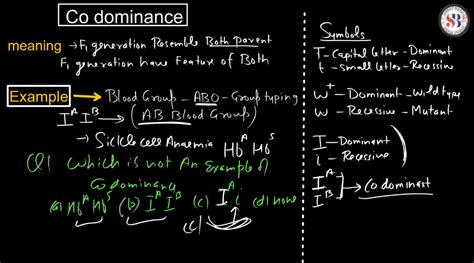 Co dominance
meaning → F₁ generation Resemble Both Parent
F₁ generation have Feature of Both
Example → Blood Group - ABO - Group typing
I^A I^B → (AB Blood Group)
→ Sicklecell Anaemia Hb^A Hb^S
Q1 which is not An Example of
Codominancy
(a) Hb^A Hb^S (b) I^A I^B (c) I^A i (d) none
(c)
Symbols
T - Capital letter - Dominant
t - small letter - Recessive
W⁺ - Dominant - wild type
w - Recessive - Mutant
I - Dominant
i - Recessive
I^A
I^B → Co dominant
SB